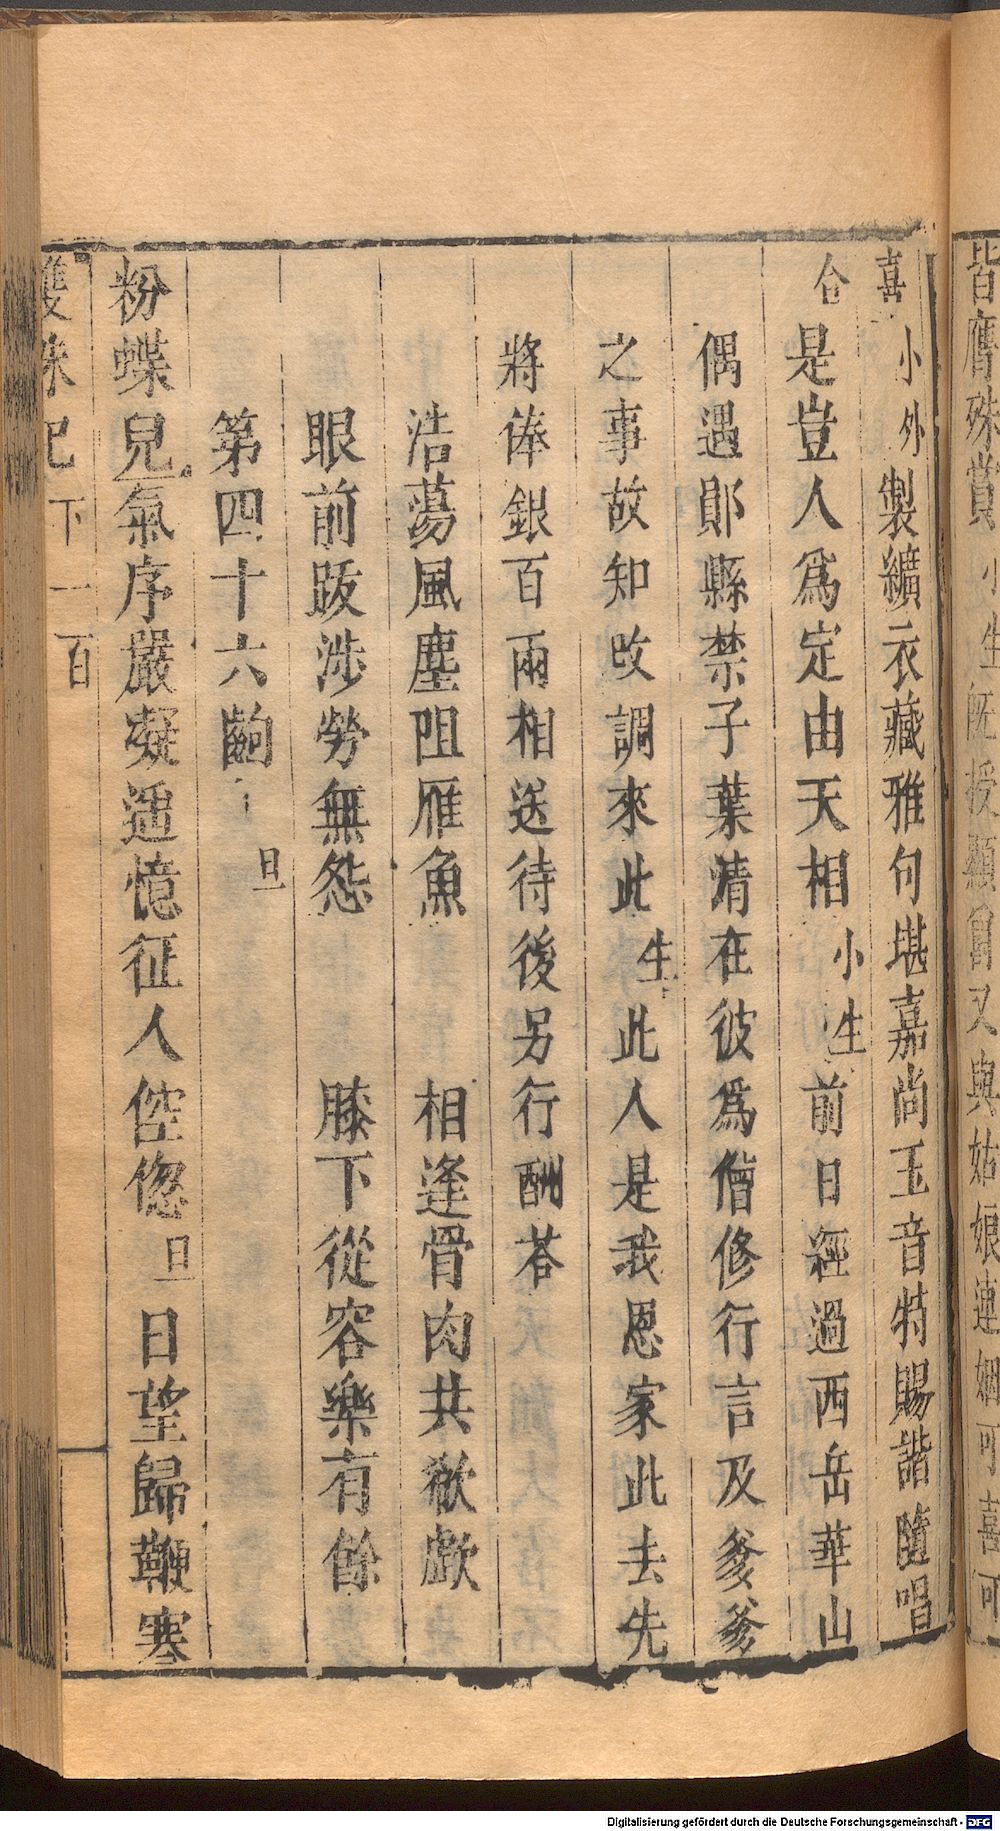 皆膺殊賞小生既授顯官又與姑娘連姻可喜可
喜小外製纊衣藏雅句堪嘉尚玉音特賜諧隨唱
合是豈人爲定由天相小生前日經過西岳華山
偶遇鄖縣禁子葉清在彼爲僧修行言及爹爹
之事故知改調來此生此人是我恩家此去先
將俸銀百兩相送待後另行酬荅
浩蕩風塵阻雁魚 相逢骨肉共欷歔
眼前跋涉勞無怨 膝下從容樂有餘
第四十六齣
旦
粉蝶兒氣序嚴凝遥憶征人倥傯旦日望歸鞭塞
雙珠記下一百
Digitalisierung gefördert durch die Deutsche Forschungsgemeinschaft - DFG